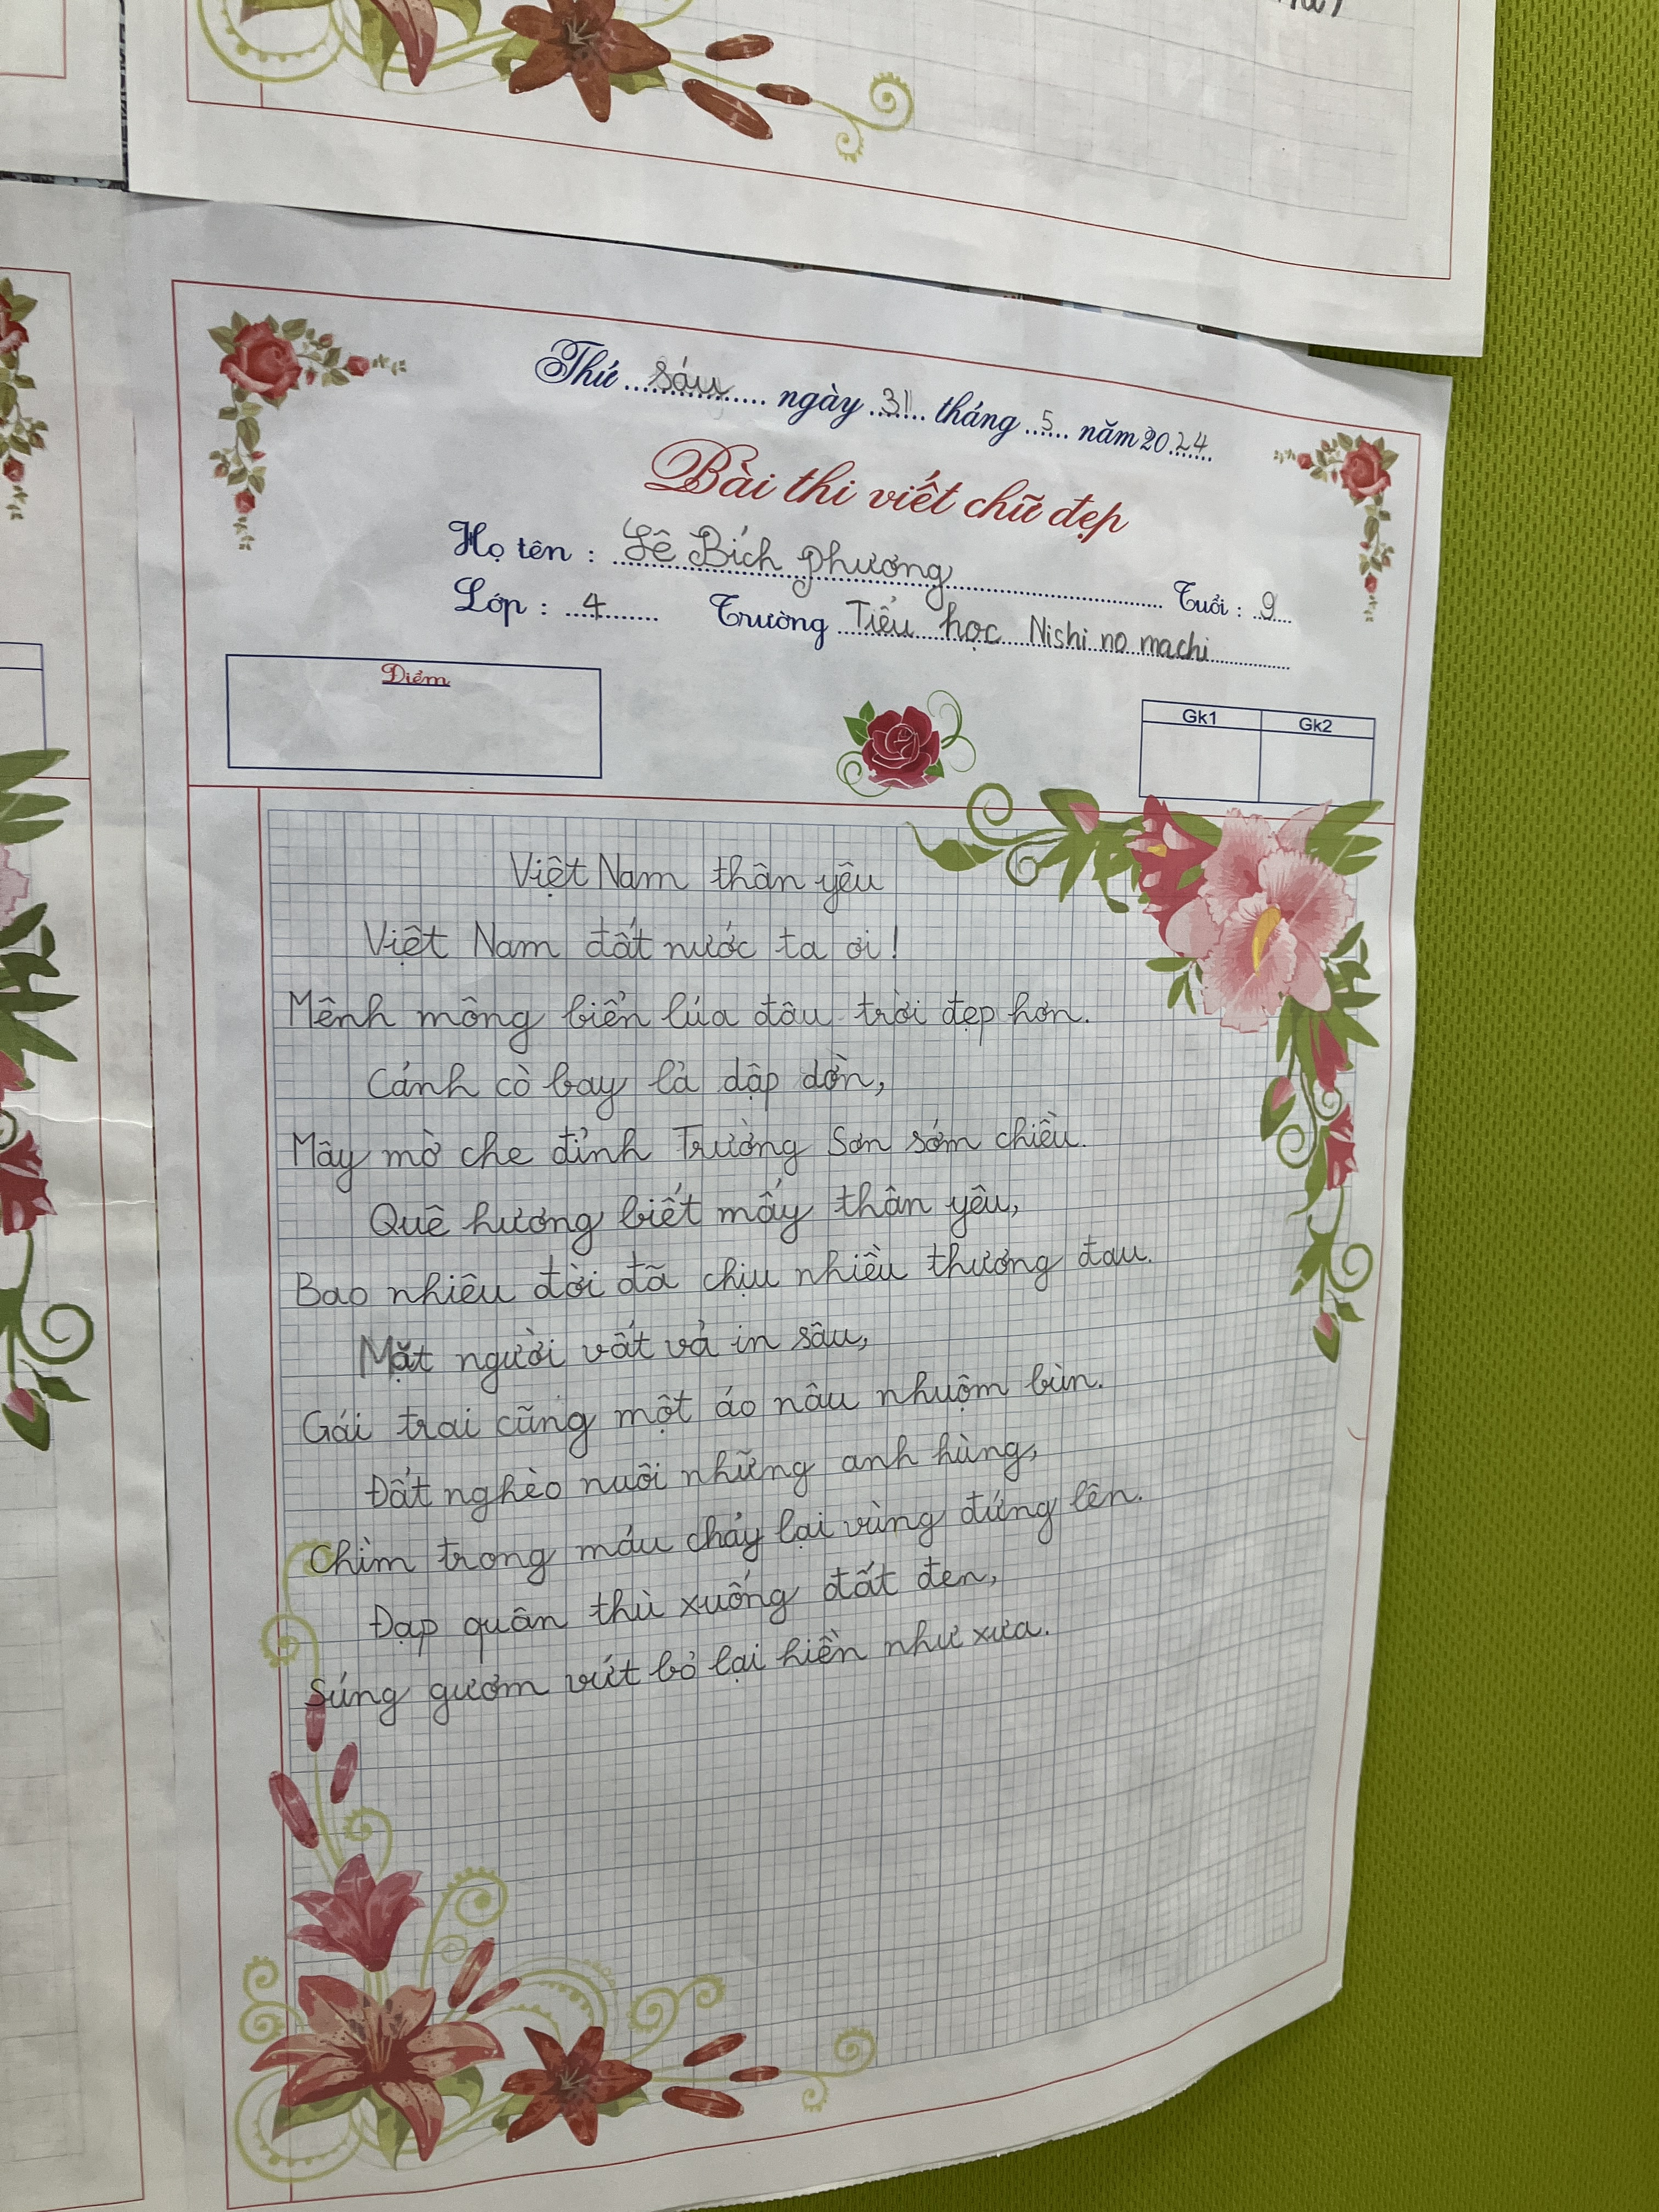 Thứ sáu ngày 31 tháng 5 năm 2024
Bài thi viết chữ đẹp
Họ tên : Lê Bích Phương Tuổi : 9
Lớp : 4 Trường Tiểu học Nishi no machi
Điểm
Gk1 Gk2
Việt Nam thân yêu
Việt Nam đất nước ta ơi!
Mênh mông biển lúa đâu trời đẹp hơn.
Cánh cò bay lả dập dờn,
Mây mờ che đỉnh Trường Sơn sớm chiều.
Quê hương biết mấy thân yêu,
Bao nhiêu đời đã chịu nhiều thương đau.
Mặt người vất vả in sâu,
Gái trai cũng một áo nâu nhuộm bùn.
Đất nghèo nuôi những anh hùng,
Chìm trong máu chảy lại vùng đứng lên.
Đạp quân thù xuống đất đen,
Súng gươm vứt bỏ lại hiền như xưa.